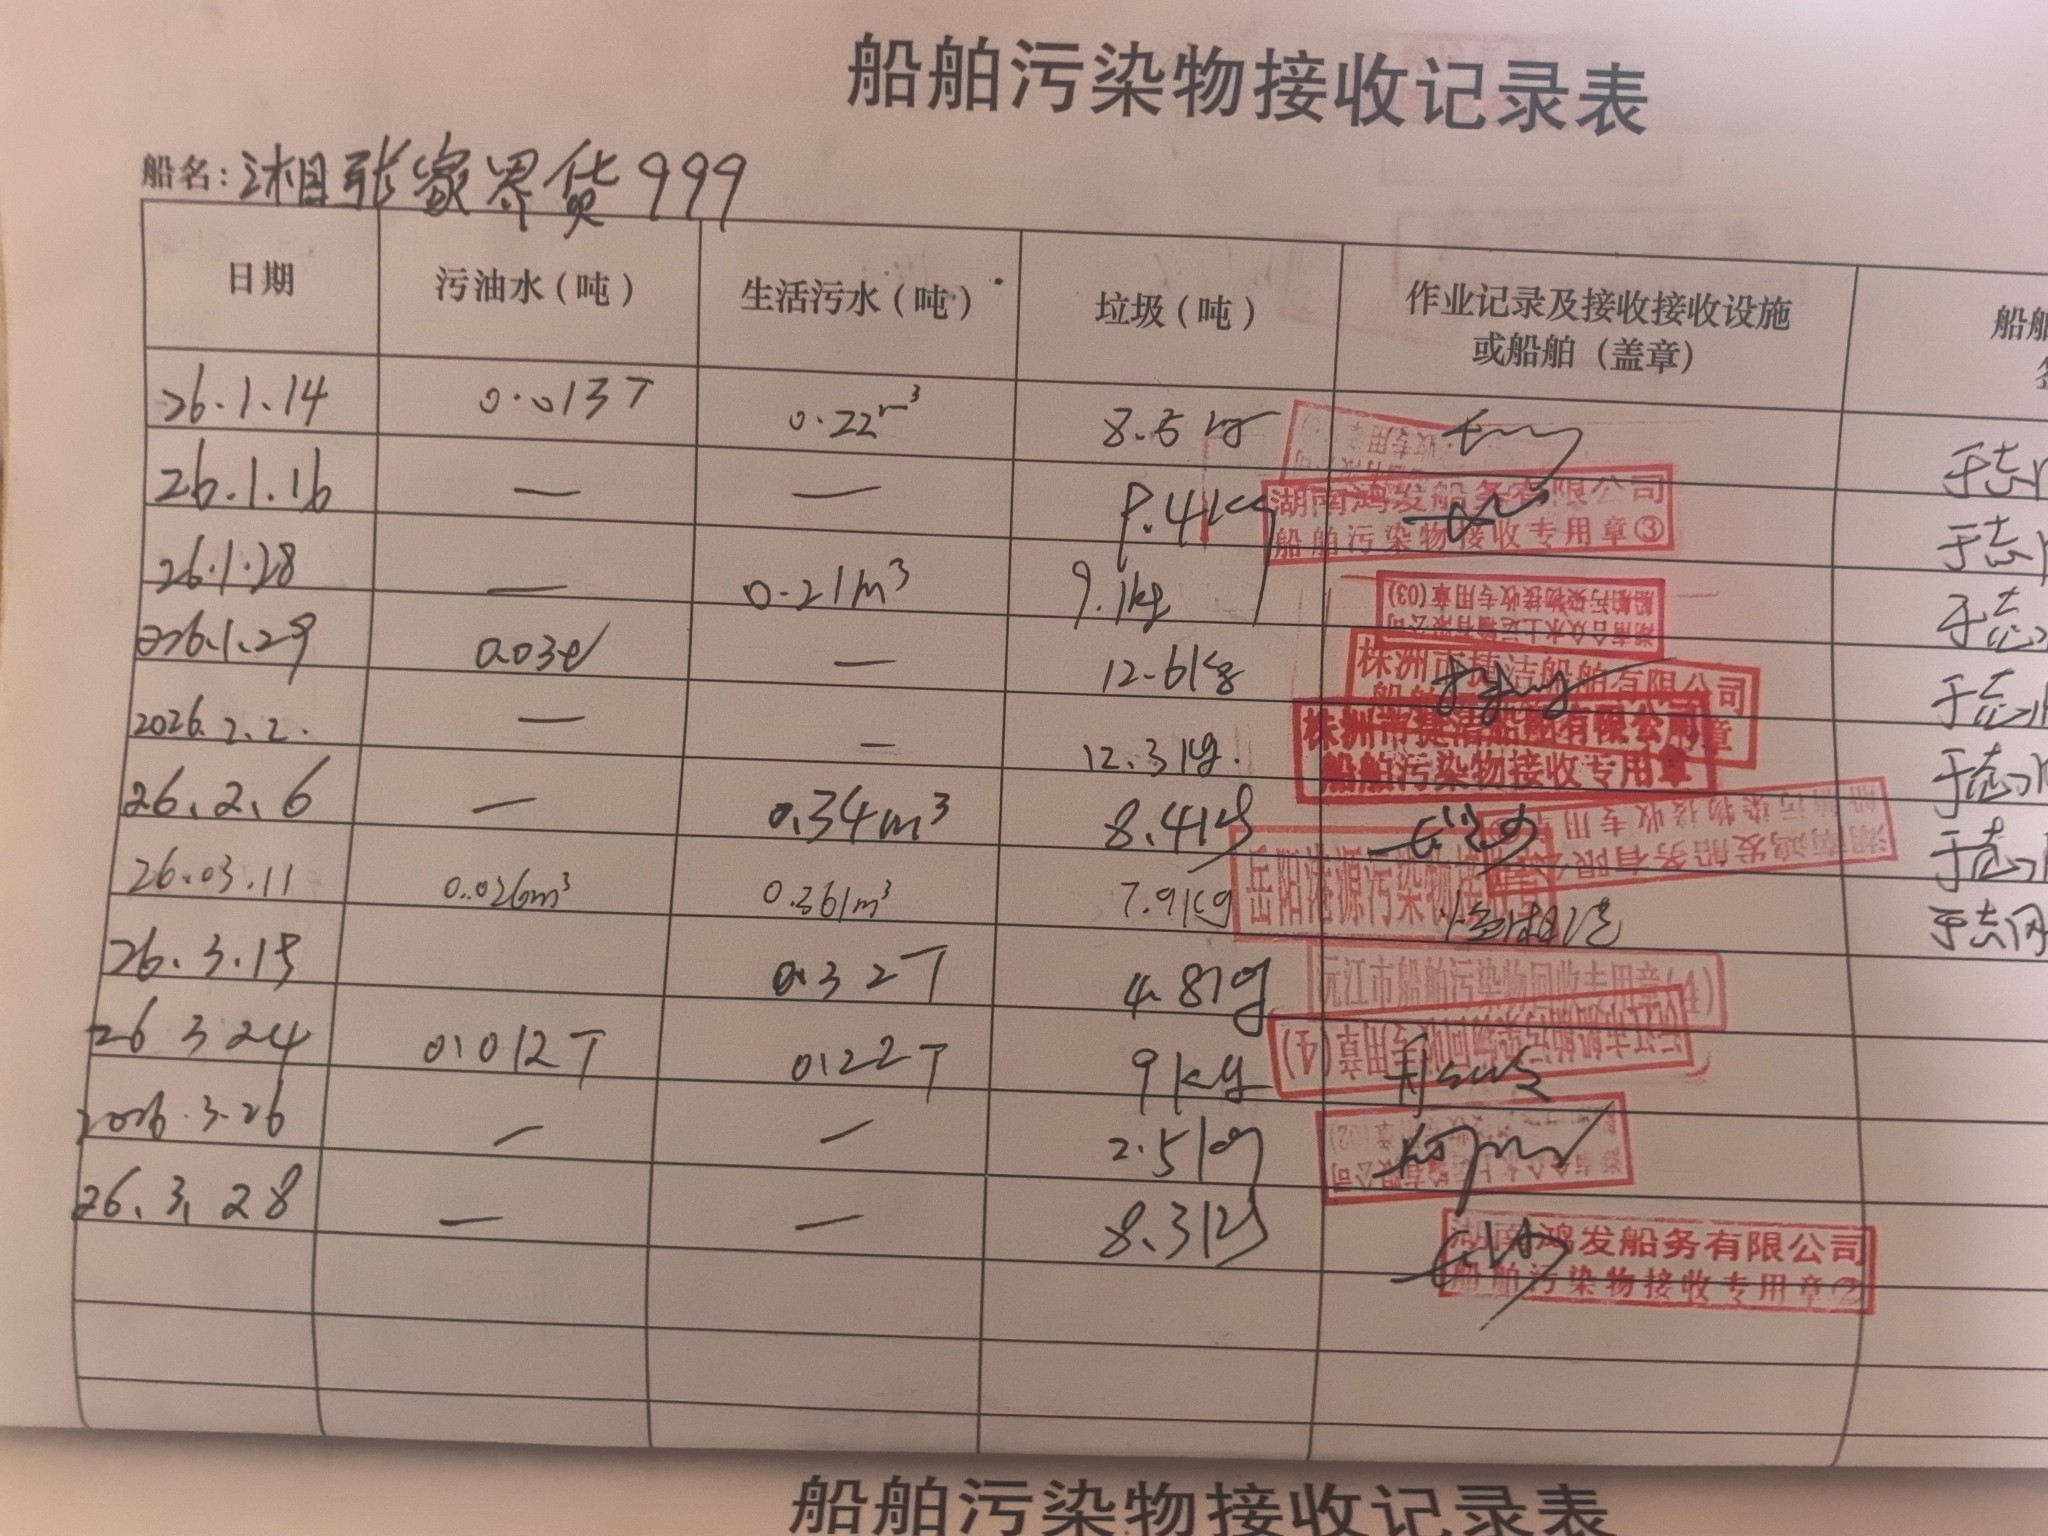 船舶污染物接收记录表
船名：湘张家界货999
日期 污油水（吨） 生活污水（吨） 垃圾（吨） 作业记录及接收接收设施或船舶（盖章） 船舶
26.1.14 0.013T 0.22m³ 8.5kg
26.1.16 — — 8.4kg 湖南鸿发船务有限公司 船舶污染物接收专用章③ 于志
26.1.28 — 0.21m³ 9.1kg 湖南合众水上运输有限公司 船舶污染物接收专用章(03) 于志
2026.1.29 0.03 — 12.6kg 株洲市捷洁船舶有限公司 于志
2026.2.2. — — 12.3kg. 株洲市捷洁船舶有限公司 船舶污染物接收专用章 于志
26.2.6 — 0.34m³ 8.4kg 湖南鸿发船务有限公司 船舶污染物接收专用章 于志
26.03.11 0.026m³ 0.361m³ 7.9kg 岳阳港源污染物接收 于志
26.3.15 0.32T 4.8kg 沅江市船舶污染物回收专用章(4)
26 3 24 0.012T 0.22T 9kg 沅江市船舶污染物回收专用章(4)
2026.3.26 — — 2.5kg
26.3.28 — — 8.3kg 湖南鸿发船务有限公司 船舶污染物接收专用章②
船舶污染物接收记录表